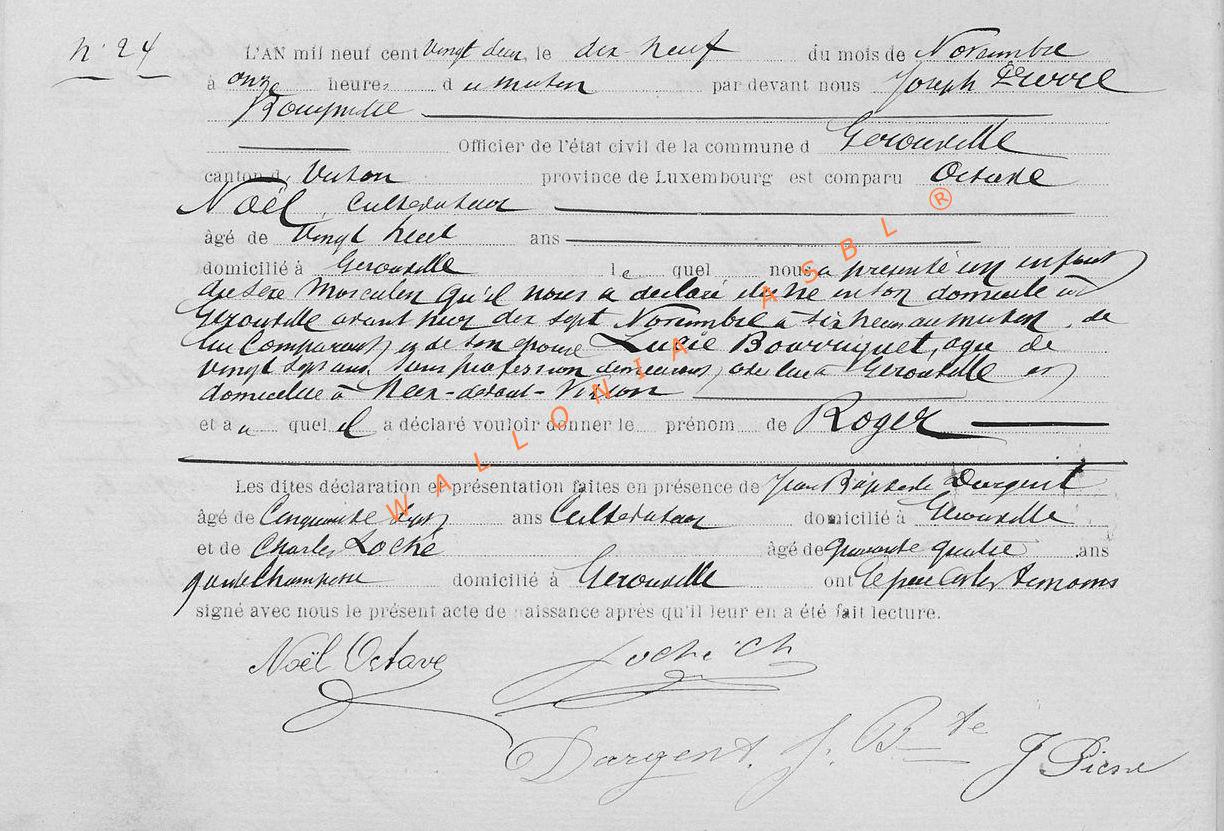 N° 24
L'AN mil neuf cent vingt deux, le dix-neuf du mois de Novembre
à onze heures du matin par devant nous Joseph Pierre

Officier de l'état civil de la commune d Gerouville
canton d Virton province de Luxembourg est comparu Octave
Noël, Cultivateur
âgé de vingt huit ans
domicilié à Gerouville lequel nous a présenté un enfant
du sexe masculin qu'il nous a déclaré être né en son domicile à
Gerouville avant hier dix sept Novembre à six heures au matin, de
lui Comparant et de son épouse Lucie Bourruguet, agée de
vingt sept ans sans profession demeurant avec lui à Gerouville et
domiciliée à Meix-devant-Virton
et au quel il a déclaré vouloir donner le prénom de Roger
Les dites déclaration et présentation faites en présence de Jean Baptiste Dargent
âgé de Cinquante sept ans Cultivateur domicilié à Gerouville
et de Charles Loche âgé de quarante quatre ans
garde Champetre domicilié à Gerouville ont le père et les témoins
signé avec nous le présent acte de naissance après qu'il leur en a été fait lecture.
Noël Octave Loche Ch
Dargent. J. Bte J Pierre
WALLONIA ASBL ®